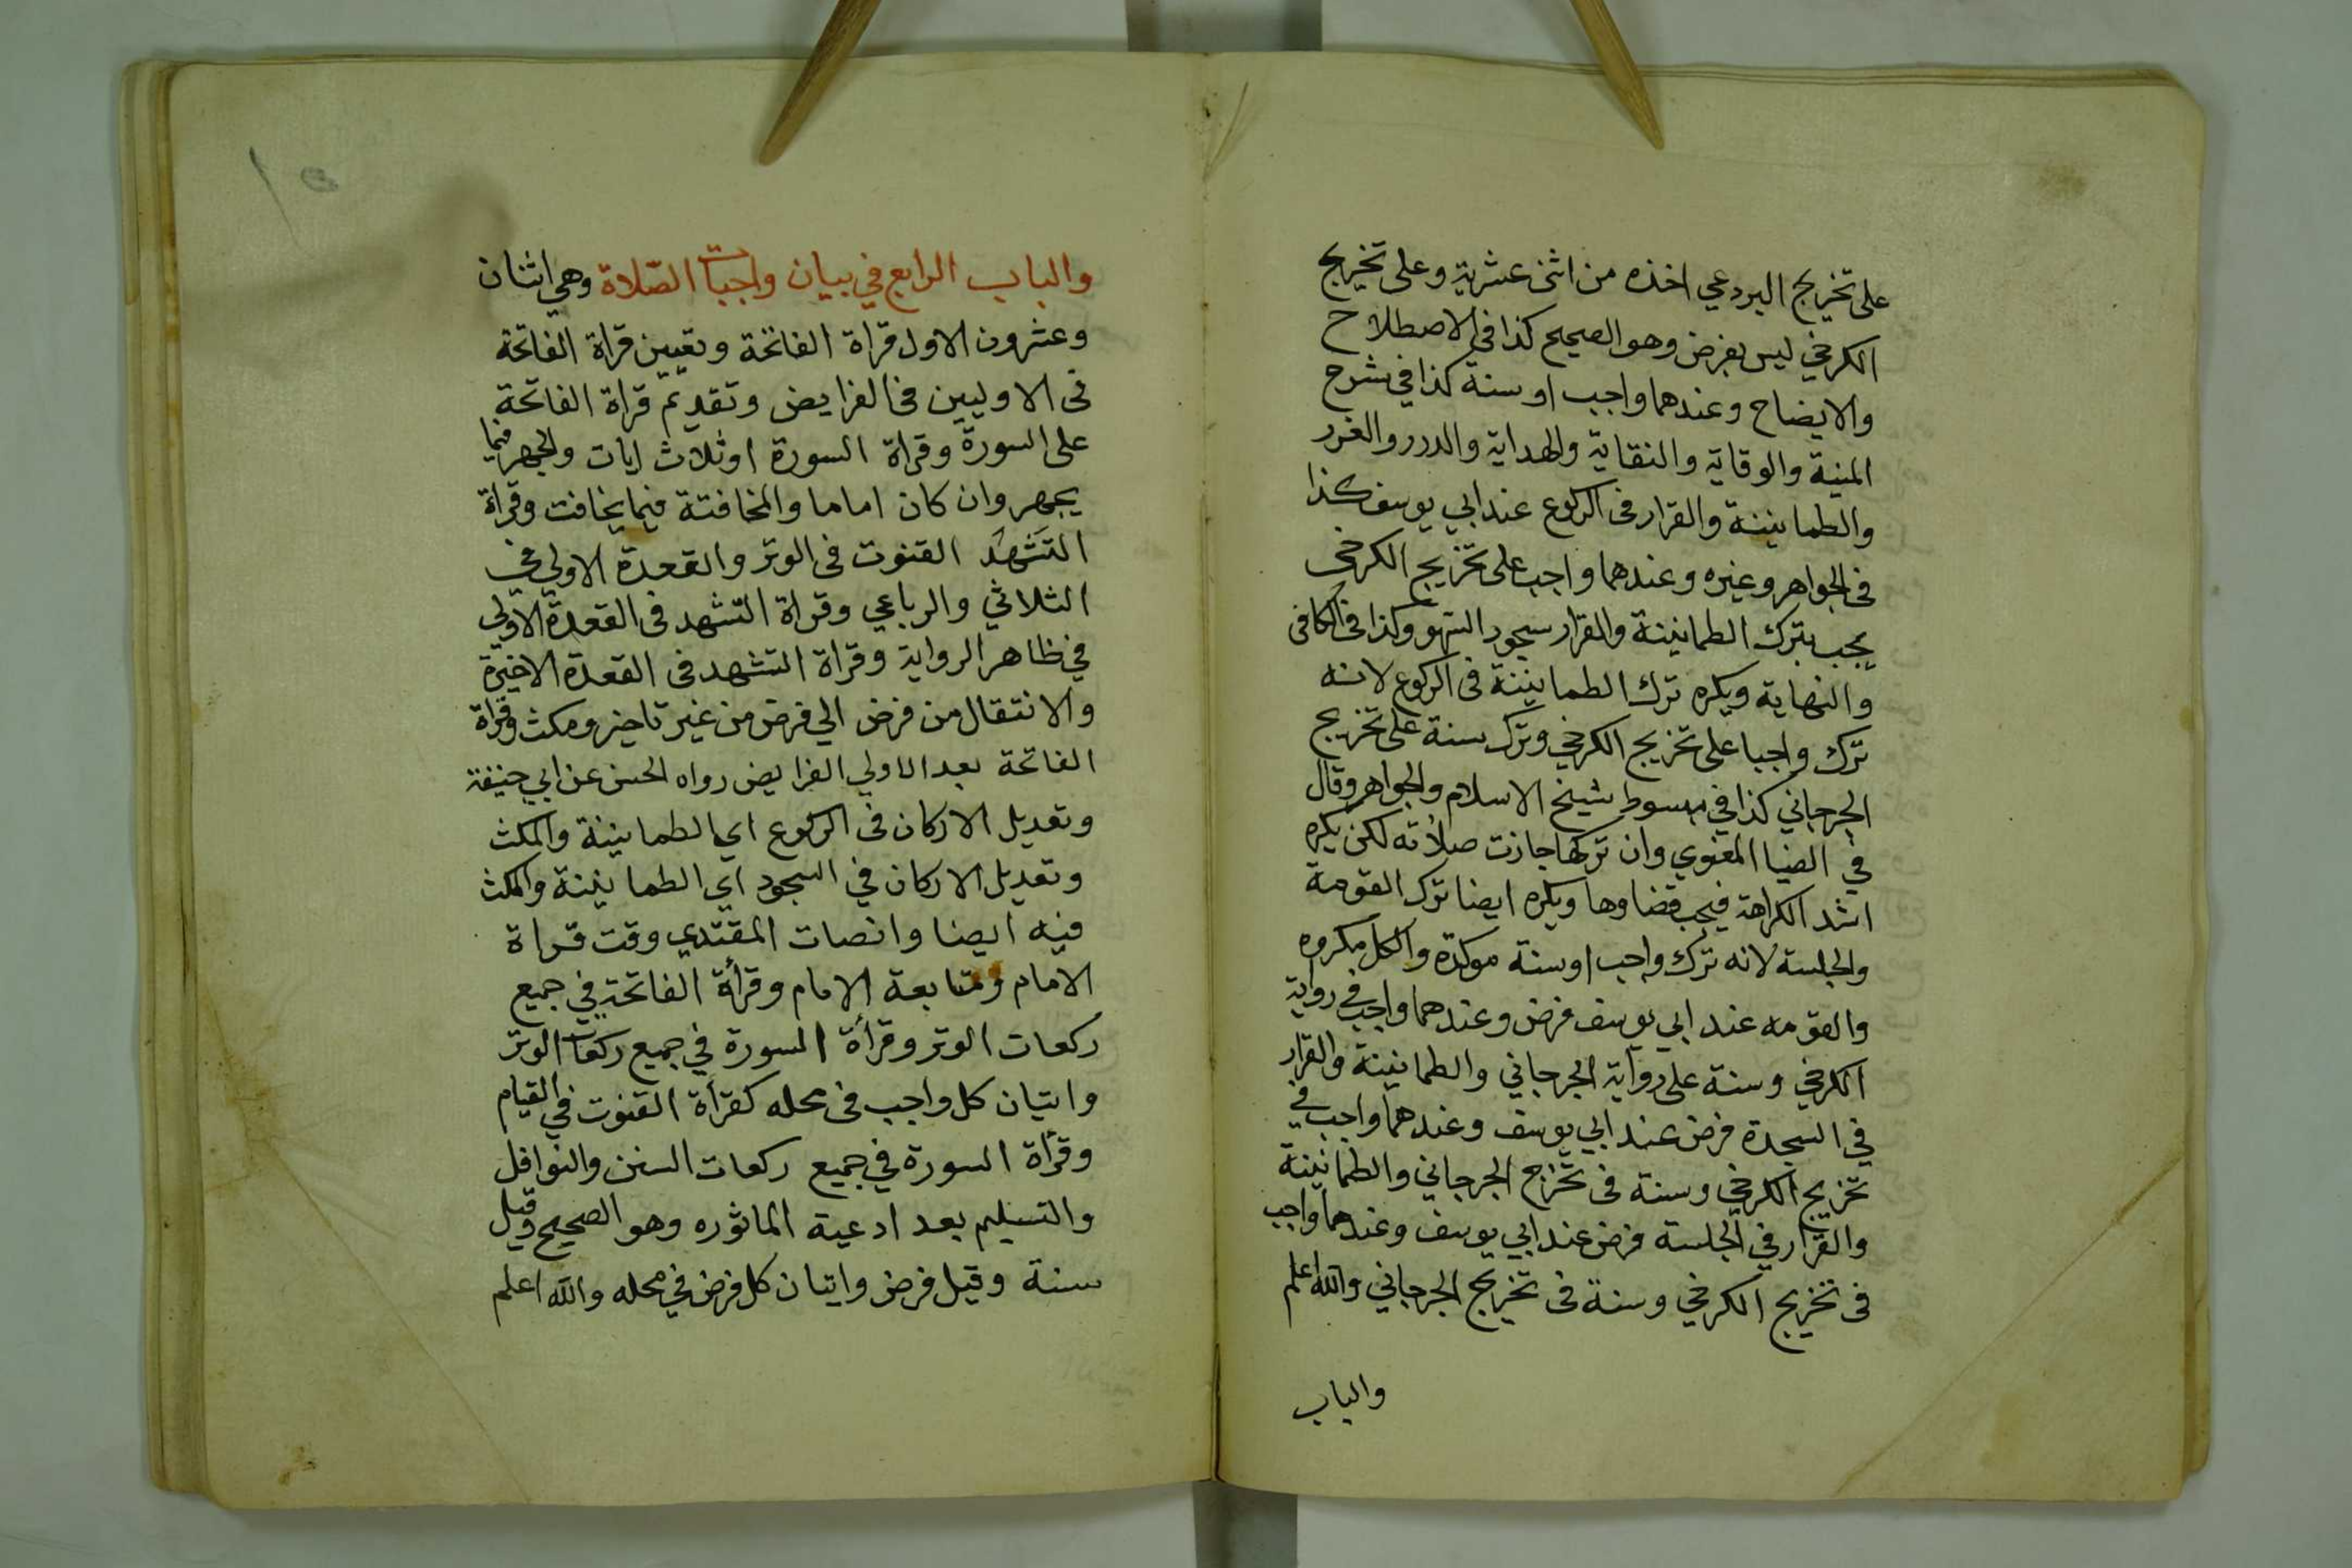 على تخريج البردعي اخذه من اثنى عشرية وعلى تخريج
الكرخي ليس بفرض وهو الصحيح كذا في الاصطلاح
والايضاح وعندهما واجب او سنة كذا في شرح
المنية والوقاية والنقاية والهداية والدرر والغرر
والطمانينة والقرار فى الركوع عند ابي يوسف كذا
فى الجواهر وغيره وعندهما واجب على تخريج الكرخى
يجب بترك الطمانينة والقرار سجود السهو وكذا فى الكافى
والنهاية ويكره ترك الطمانينة فى الركوع لانه
ترك واجبا على تخريج الكرخي وترك سنة على تخريج
الجرجاني كذا في مبسوط شيخ الاسلام والجواهر وقال
في الضيا المغنوي وان تركها جازت صلاته لكن يكره
اشد الكراهة فيجب قضاوها ويكره ايضا ترك القومة
والجلسة لانه ترك واجب او سنة موكدة والكل مكروه
والقومه عند ابي يوسف فرض وعندهما واجب في رواية
الكرخي وسنة على رواية الجرجاني والطمانينة والقرار
في السجدة فرض عند ابي يوسف وعندهما واجب في
تخريج الكرخي وسنة فى تخرج الجرجاني والطمانينة
والقرار في الجلسة فرض عند ابي يوسف وعندهما واجب
فى تخريج الكرخي وسنة فى تخريج الجرجاني والله اعلم
والباب
١٥
والباب الرابع في بيان واجبات الصّلاة وهي اثنان
وعشرون الاول قراة الفاتحة وتعيين قراة الفاتحة
فى الاوليين فى الفرايض وتقديم قراة الفاتحة
على السورة وقراة السورة او ثلاث ايات والجهر فيما
يجهر وان كان اماما والمخافتة فيما يخافت وقراة
التشهد القنوت فى الوتر والقعدة الاولي في
الثلاثي والرباعي وقراة التشهد فى القعدة الاولي
في ظاهر الرواية وقراة التشهد فى القعدة الاخيرة
والانتقال من فرض الي فرض من غير تاخير ومكث وقراة
الفاتحة بعد الاولي الفرايض رواه الحسن عن ابي حنيفة
وتعديل الاركان فى الركوع اي الطمانينة والمكث
وتعديل الاركان في السجود اي الطمانينة والمكث
فيه ايضا وانصات المقتدي وقت قراة
الامام ومتابعة الامام وقرأة الفاتحة في جميع
ركعات الوتر وقرأة السورة في جميع ركعات الوتر
واتيان كل واجب فى محله كقرأة القنوت في القيام
وقرأة السورة في جميع ركعات السنن والنوافل
والتسليم بعد ادعية الماثوره وهو الصحيح وقيل
سنة وقيل فرض واتيان كل فرض في محله والله اعلم